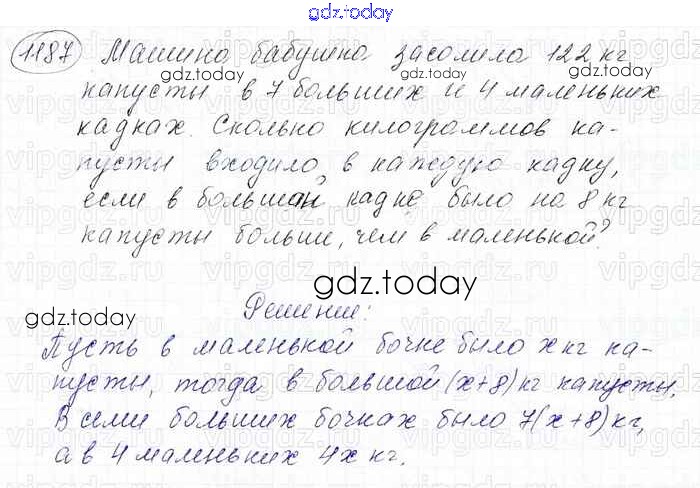 gdz.today
1187 Машина бабушка засолила 122 кг
gdz.today gdz.today
капусты в 7 больших и 4 маленьких
кадках. Сколько килограммов ка-
пусты входило в каждую кадку,
если в большой кадке было на 8 кг
капусты больше, чем в маленькой?
gdz.today
Решение:
gdz.today
Пусть в маленькой бочке было x кг ка-
пусты, тогда в большой (x+8) кг капусты.
В семи больших бочках было 7(x+8) кг,
а в 4 маленьких 4x кг.